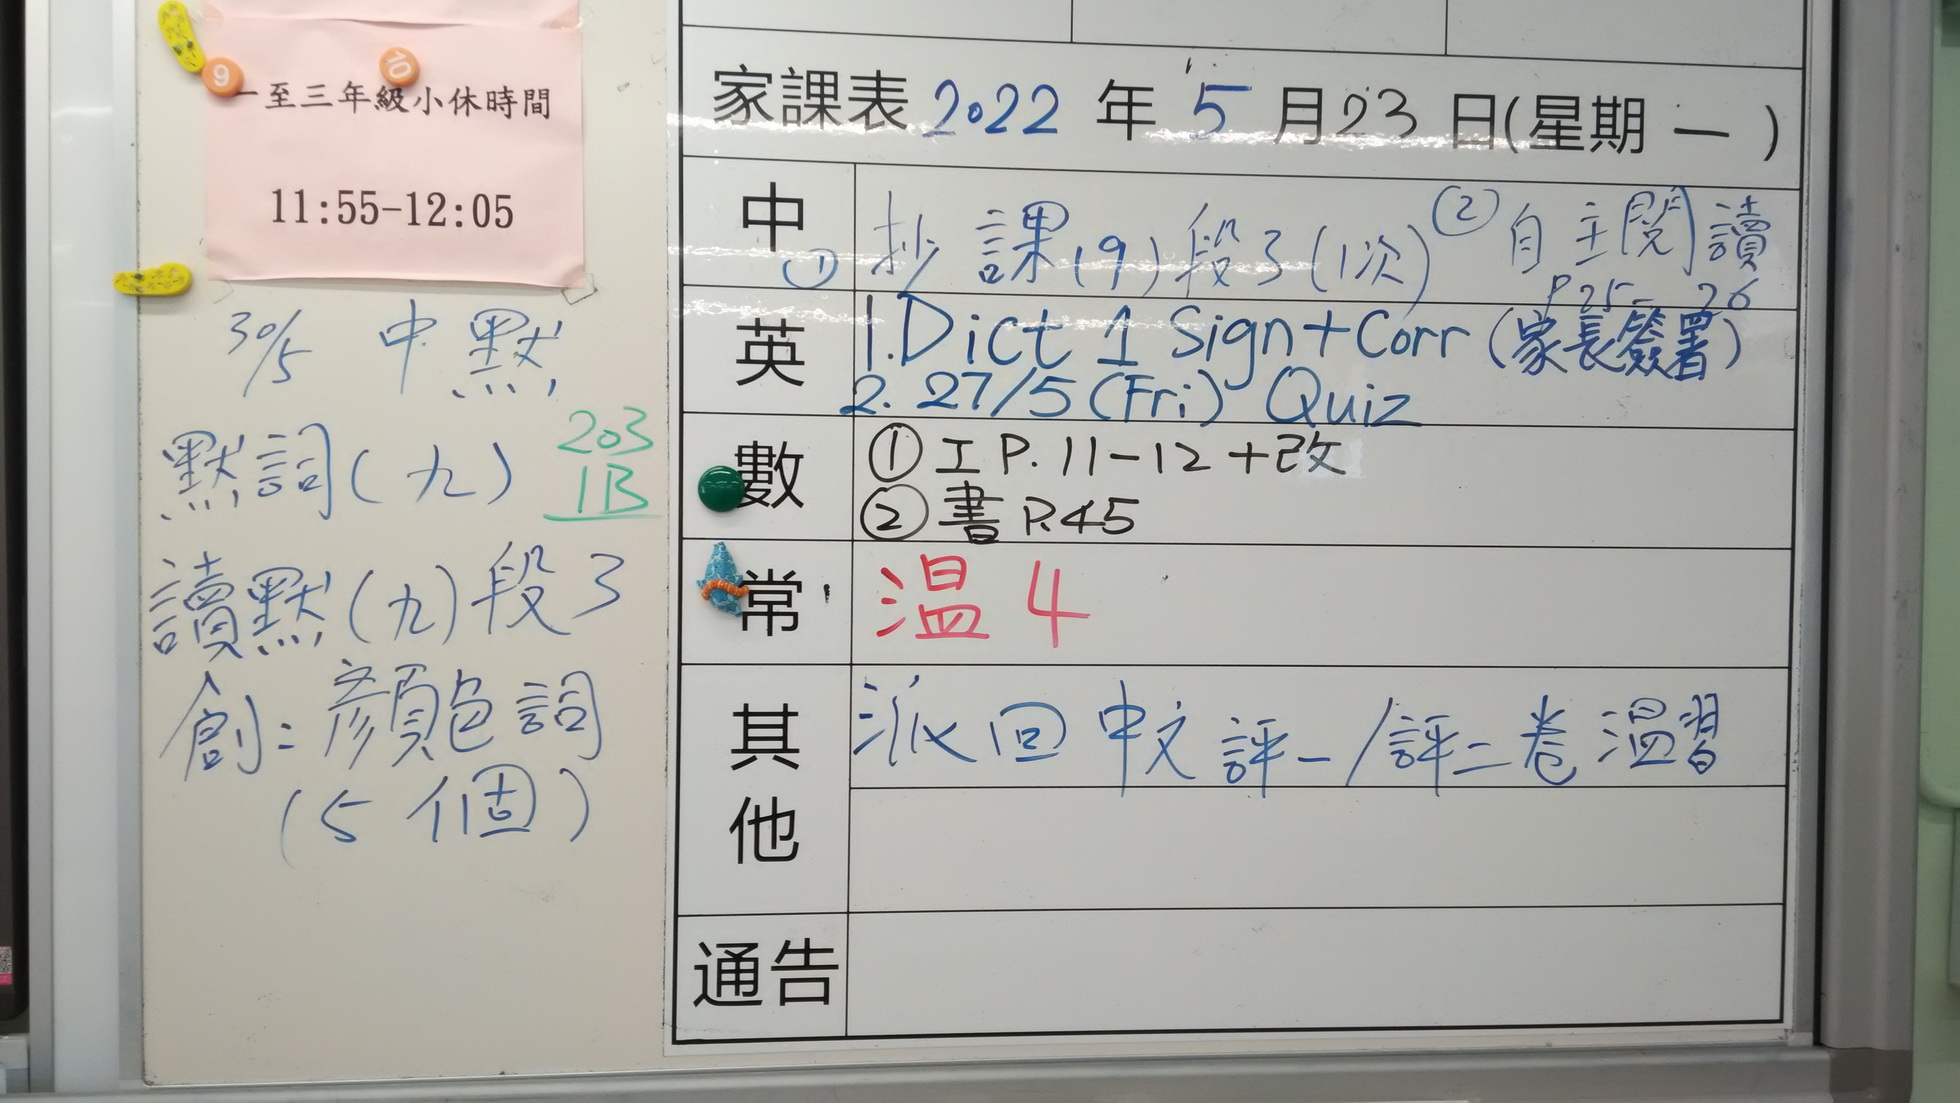 9
10
一至三年級小休時間
11:55-12:05
30/5 中默
默詞(九)
203
1B
讀默(九)段3
創:顏色詞
(5個)
家課表 2022 年 5 月 23 日(星期 一 )
中 ① 抄課(9)段3(1次) ② 自主閱讀
P25-26
英 1. Dict 1 Sign+Corr (家長簽署)
2. 27/5 (Fri) Quiz
數 ① 工 P. 11-12 +改
② 書 P.45
常 溫 4
其他 派回中文評一/評二卷溫習
通告